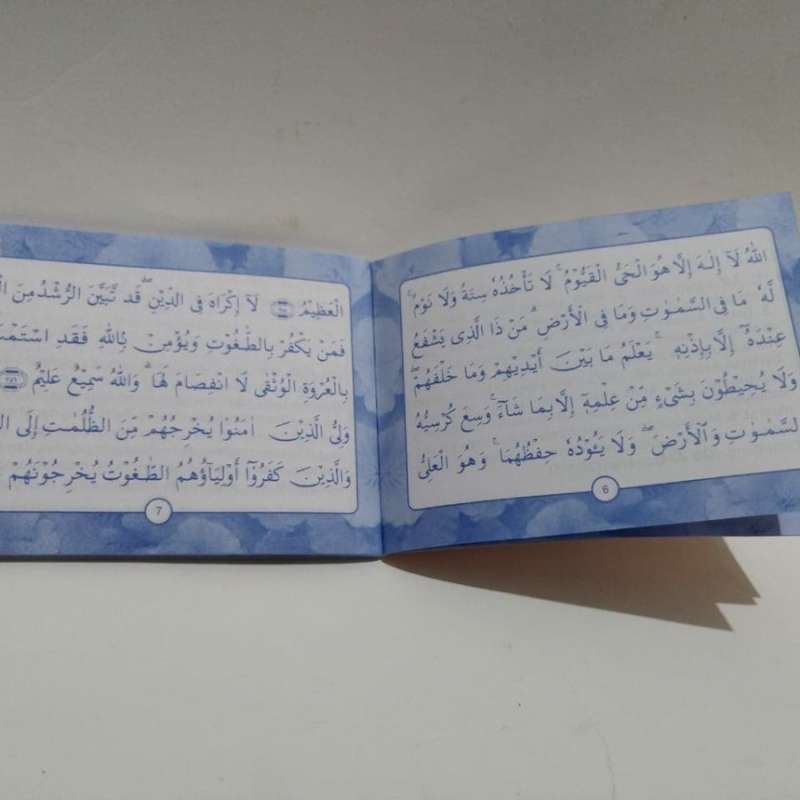 اللّٰهُ لَآ إِلٰهَ إِلَّا هُوَ الْحَىُّ الْقَيُّوْمُ ۚ لَا تَأْخُذُهٗ سِنَةٌ وَّلَا نَوْمٌ ۚ
لَّهٗ مَا فِى السَّمٰوٰتِ وَمَا فِى الْأَرْضِ ۗ مَنْ ذَا الَّذِى يَشْفَعُ
عِنْدَهٗٓ إِلَّا بِإِذْنِهٖ ۚ يَعْلَمُ مَا بَيْنَ أَيْدِيْهِمْ وَمَا خَلْفَهُمْ ۖ
وَلَا يُحِيْطُوْنَ بِشَىْءٍ مِّنْ عِلْمِهٖٓ إِلَّا بِمَا شَآءَ ۚ وَسِعَ كُرْسِيُّهُ
السَّمٰوٰتِ وَالْأَرْضَ ۖ وَلَا يَئُوْدُهٗ حِفْظُهُمَا ۚ وَهُوَ الْعَلِىُّ
6
الْعَظِيْمُ ﴿٢٥٥﴾ لَآ إِكْرَاهَ فِى الدِّيْنِ ۖ قَد تَّبَيَّنَ الرُّشْدُ مِنَ
فَمَنْ يَكْفُرْ بِالطّٰغُوْتِ وَيُؤْمِنْ بِاللّٰهِ فَقَدِ
بِالْعُرْوَةِ الْوُثْقٰى لَا انْفِصَامَ لَهَا ۗ وَاللّٰهُ سَمِيْعٌ عَلِيْمٌ ﴿٢٥٦﴾
وَلِىُّ الَّذِيْنَ اٰمَنُوْا يُخْرِجُهُمْ مِّنَ الظُّلُمٰتِ إِلَى
وَالَّذِيْنَ كَفَرُوْٓا أَوْلِيَاؤُهُمُ الطّٰغُوْتُ يُخْرِجُوْنَهُمْ
7